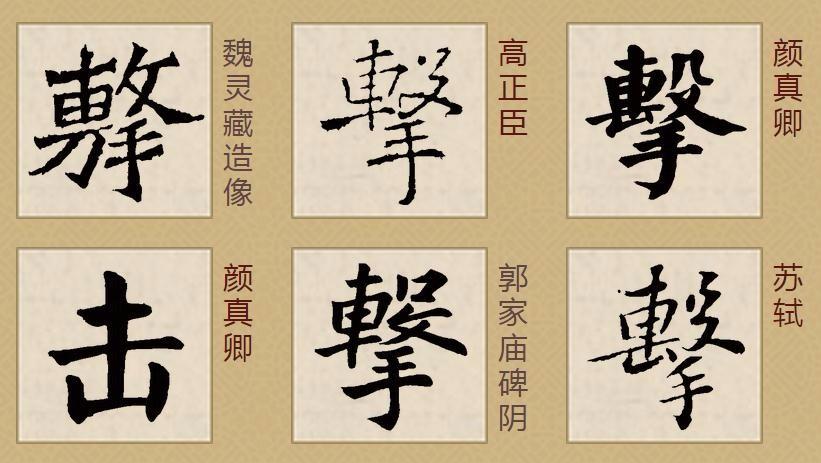 擊
魏灵藏造像
擊
高正臣
擊
颜真卿
击
颜真卿
擊
郭家庙碑阴
擊
苏轼